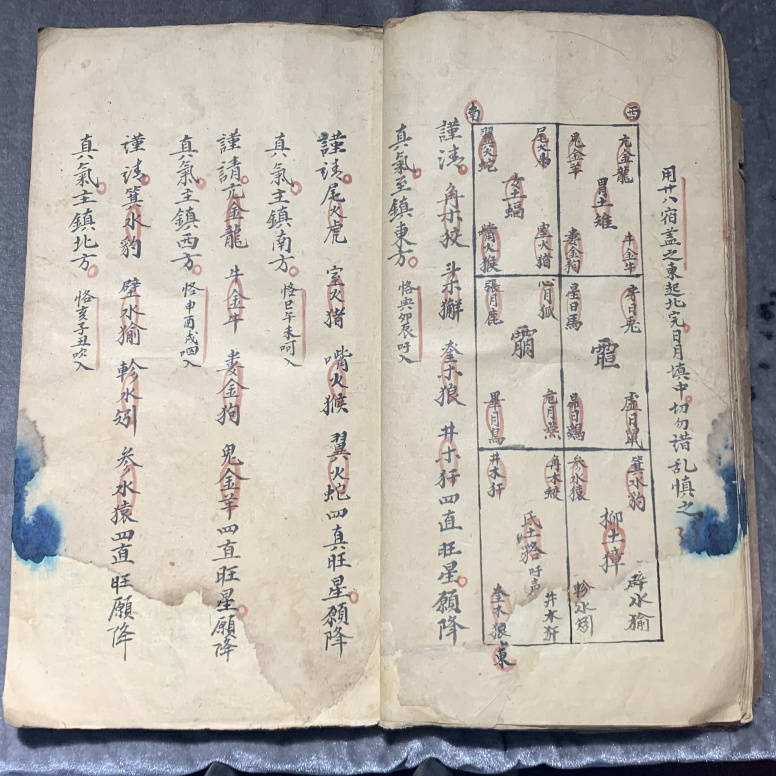 用廿八宿盖之東起北完日月填中切勿諎乱慎之
西
南
亢金龍
胃土雉
牛金牛
鬼金羊
婁金狗
尾火虎
女土蝠
室火猪
翼火蛇
嘴火猴
房日兎
虛日鼠
星日馬
昴日鷄
心月狐
危月燕
張月鹿
畢月烏
箕水豹
柳土獐
壁水㺄
参水猿
軫水蚓
角木蛟
氐土狢
吁声
井木犴
井木犴
奎木狼
東
謹請角木蛟 斗木獬 奎木狼 井木犴四直旺星願降
真氣至鎮東方 恪寅卯辰吁入
謹請尾火虎 室火猪 嘴火猴 翼火蛇四真旺星願降
真氣主鎮南方 恪巳午未呵入
謹請亢金龍 牛金牛 婁金狗 鬼金羊四直旺星願降
真氣主鎮西方 恪申酉戌呬入
謹請箕水豹 壁水㺄 軫水蚓 参水猿四直旺星願降
真氣主鎮北方 恪亥子丑吹入